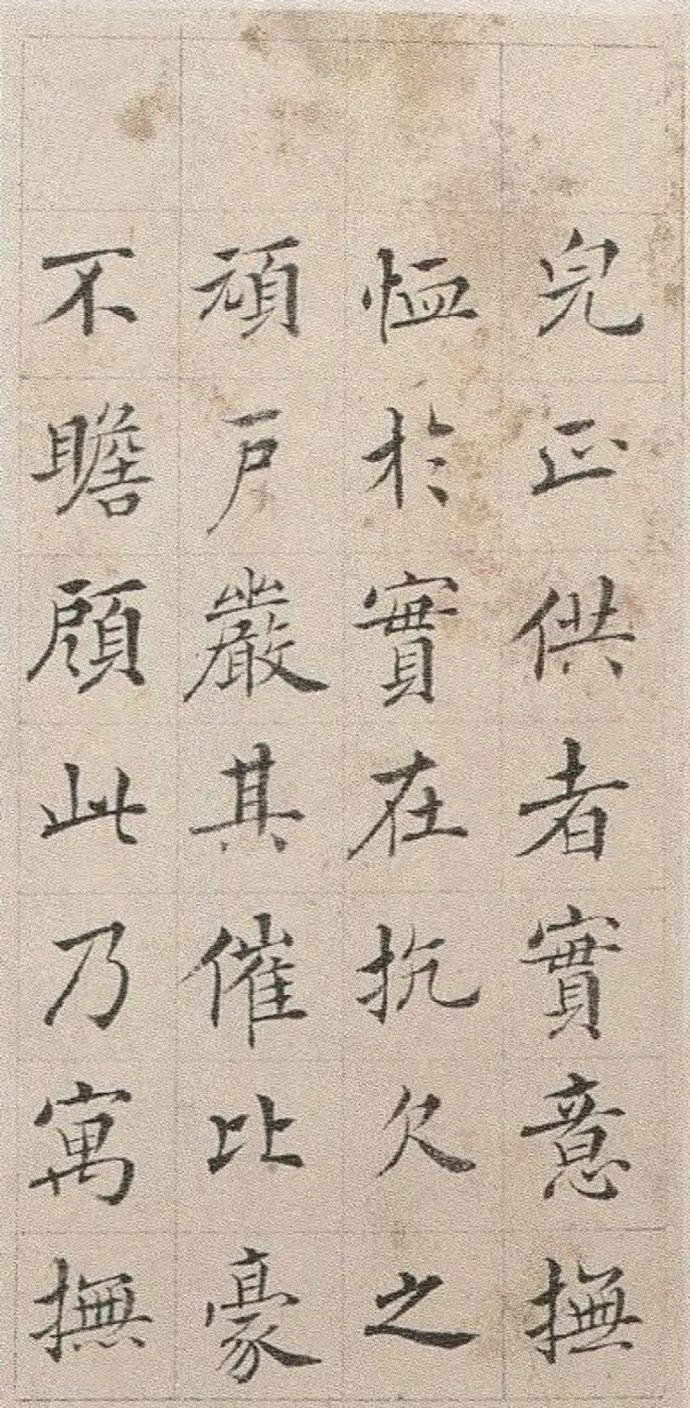 完正供者實意撫
恤於實在抗欠之
頑戶嚴其催比豪
不瞻顧此乃寓撫